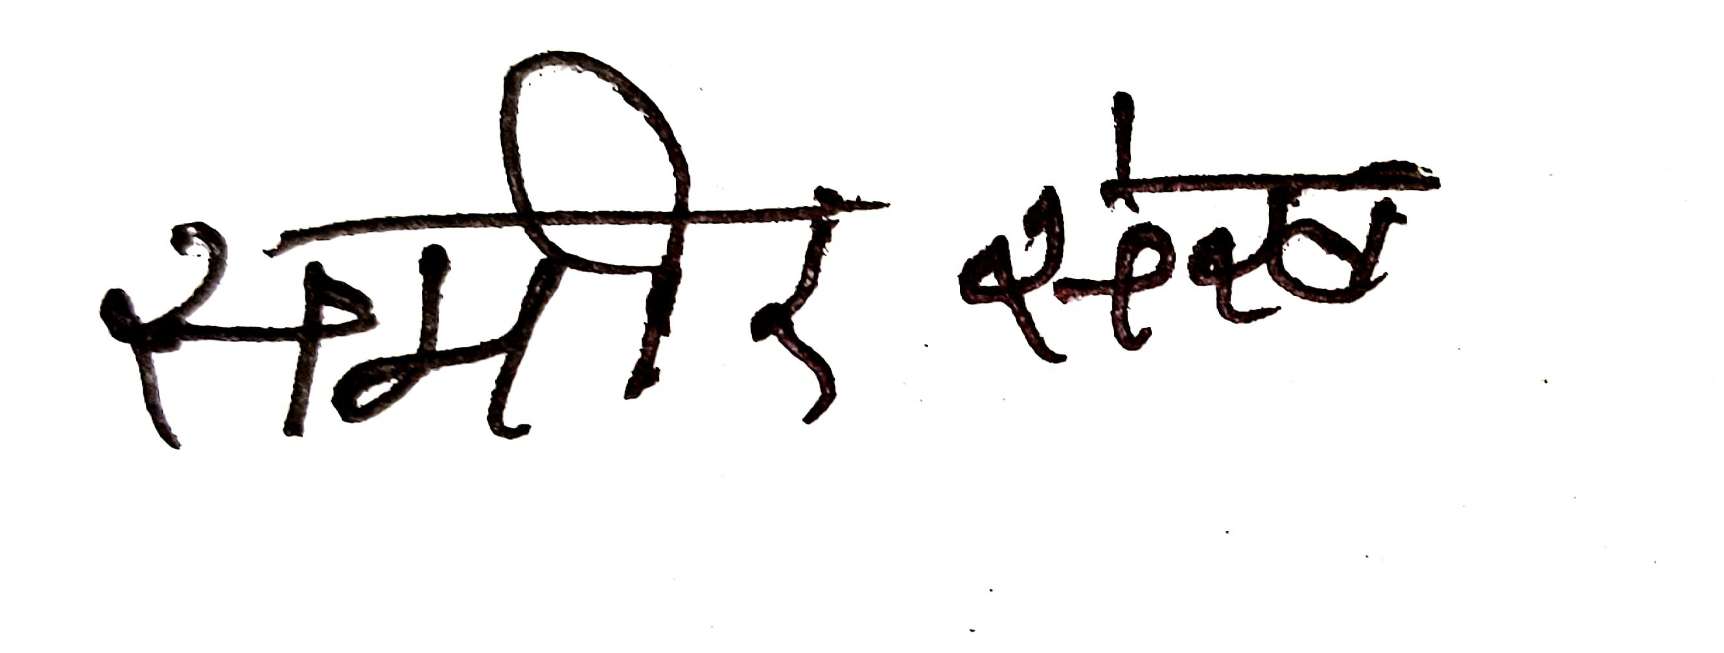 समीर सेख